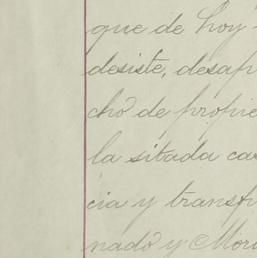 que de hoy
desiste, desap
cho de propie
la sitada cas
cia y transf
nado y Mor